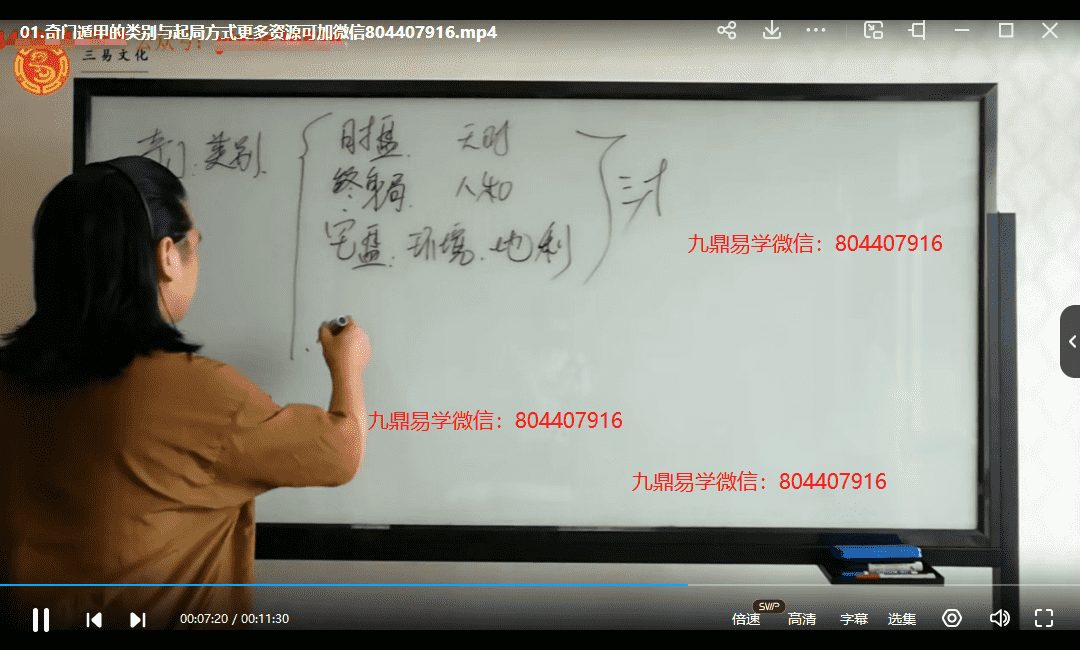 01.奇门遁甲的类别与起局方式更多资源可加微信804407916.mp4
三易文化
奇门.类别.
时盘. 天时
终身局. 人和
三才
宅盘. 环境. 地利
九鼎易学微信：804407916
九鼎易学微信：804407916
九鼎易学微信：804407916
00:07:20 / 00:11:30
倍速
SVIP
高清
字幕
选集